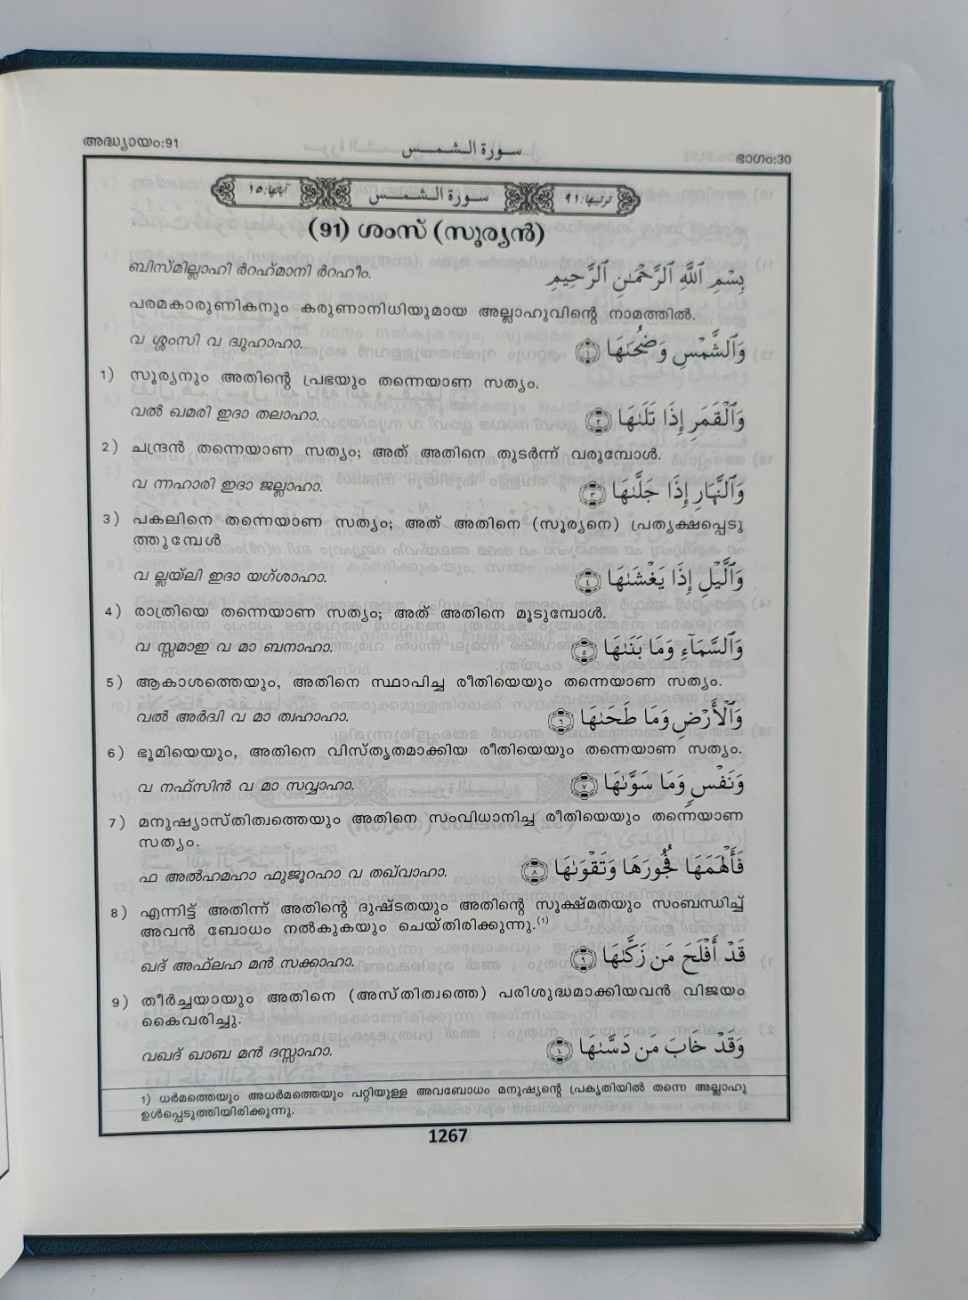 അദ്ധ്യായം:91 سورة الشمس ഭാഗം:30
آياتها: ١٥ سورة الشمس ترتيبها: ٩١
(91) ശംസ് (സൂര്യൻ)
ബിസ്മില്ലാഹി ർറഹ്മാനി ർറഹീം. بِسْمِ ٱللَّهِ ٱلرَّحْمَٰنِ ٱلرَّحِيمِ
പരമകാരുണികനും കരുണാനിധിയുമായ അല്ലാഹുവിന്റെ നാമത്തിൽ.
വ ശ്ശംസി വ ദുഹാഹാ. وَٱلشَّمْسِ وَضُحَىٰهَا ١
1) സൂര്യനും അതിന്റെ പ്രഭയും തന്നെയാണ സത്യം.
വൽ ഖമരി ഇദാ തലാഹാ. وَٱلْقَمَرِ إِذَا تَلَىٰهَا ٢
2) ചന്ദ്രൻ തന്നെയാണ സത്യം; അത് അതിനെ തുടർന്ന് വരുമ്പോൾ.
വ ന്നഹാരി ഇദാ ജല്ലാഹാ. وَٱلنَّهَارِ إِذَا جَلَّىٰهَا ٣
3) പകലിനെ തന്നെയാണ സത്യം; അത് അതിനെ (സൂര്യനെ) പ്രത്യക്ഷപ്പെടു
ത്തുമ്പേൾ
വ ല്ലയ്ലി ഇദാ യഗ്ശാഹാ. وَٱلَّيْلِ إِذَا يَغْشَىٰهَا ٤
4) രാത്രിയെ തന്നെയാണ സത്യം; അത് അതിനെ മൂടുമ്പോൾ.
വ സ്സമാഇ വ മാ ബനാഹാ. وَٱلسَّمَآءِ وَمَا بَنَىٰهَا ٥
5) ആകാശത്തെയും, അതിനെ സ്ഥാപിച്ച രീതിയെയും തന്നെയാണ സത്യം.
വൽ അർദ്വി വ മാ ത്വഹാഹാ. وَٱلْأَرْضِ وَمَا طَحَىٰهَا ٦
6) ഭൂമിയെയും, അതിനെ വിസ്തൃതമാക്കിയ രീതിയെയും തന്നെയാണ സത്യം.
വ നഫ്സിൻ വ മാ സവ്വാഹാ. وَنَفْسٍ وَمَا سَوَّىٰهَا ٧
7) മനുഷ്യാസ്തിത്വത്തെയും അതിനെ സംവിധാനിച്ച രീതിയെയും തന്നെയാണ
സത്യം.
ഫ അൽഹമഹാ ഫുജൂറഹാ വ തഖ്വാഹാ. فَأَلْهَمَهَا فُجُورَهَا وَتَقْوَىٰهَا ٨
8) എന്നിട്ട് അതിന്ന് അതിന്റെ ദുഷ്ടതയും അതിന്റെ സൂക്ഷ്മതയും സംബന്ധിച്ച്
അവൻ ബോധം നൽകുകയും ചെയ്തിരിക്കുന്നു.(1)
ഖദ് അഫ്ലഹ മൻ സക്കാഹാ. قَدْ أَفْلَحَ مَن زَكَّىٰهَا ٩
9) തീർച്ചയായും അതിനെ (അസ്തിത്വത്തെ) പരിശുദ്ധമാക്കിയവൻ വിജയം
കൈവരിച്ചു.
വഖദ് ഖാബ മൻ ദസ്സാഹാ. وَقَدْ خَابَ مَن دَسَّىٰهَا ١٠
1) ധർമത്തെയും അധർമത്തെയും പറ്റിയുള്ള അവബോധം മനുഷ്യന്റെ പ്രകൃതിയിൽ തന്നെ അല്ലാഹു
ഉൾപ്പെടുത്തിയിരിക്കുന്നു.
1267